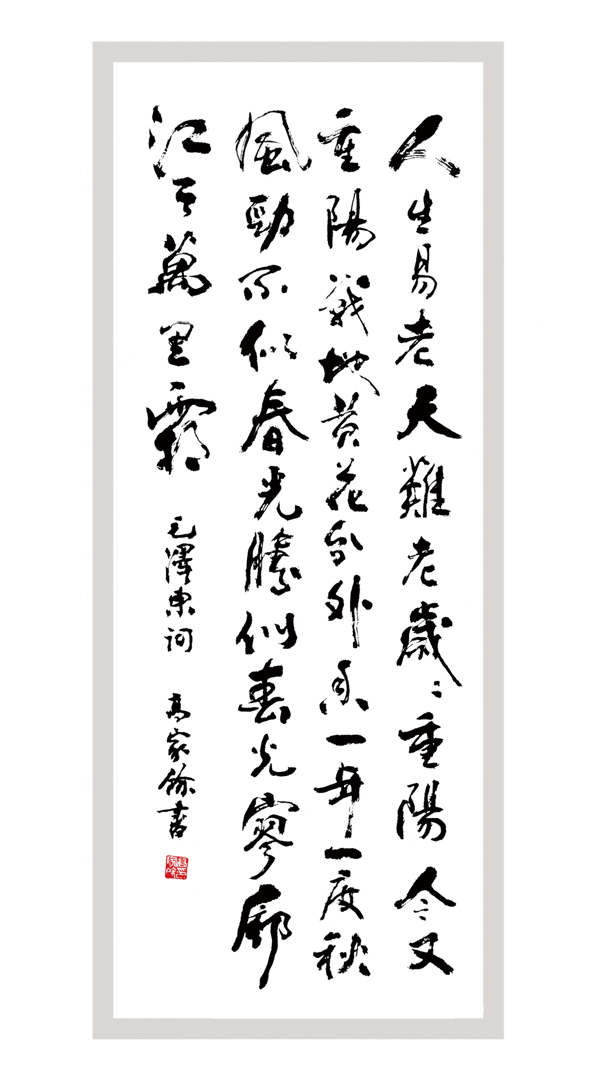 人生易老天難老歲〻重陽今又
重陽戰地黃花分外香一年一度秋
風勁不似春光勝似春光寥廓
江天萬里霜 毛澤東詞 高家書